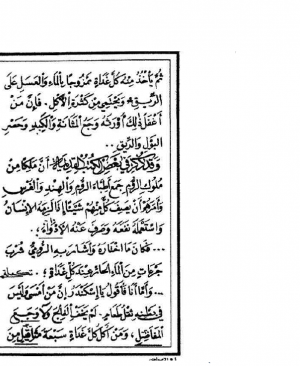 ثم يأخذ منه كل غداة ممزوجا بالماء والعسل على
الريق، ويحتمي من كثرة الأكل. فإن من
أغفل ذلك أورثه وجع المثانة والكبد وحصر
البول والريق..
وقد ذكر في بعض الكتب القديمة أن ملكا من
ملوك الروم جمع أطباء الروم والهند والفرس
وأمرهم أن يصف كل منهم شيئا إذا لزمه الإنسان
واستعمله نفعه وصرف عنه الأدواء؛
... فكان ما اختاره وأشار به الرومي شرب
جرعات من الماء الحار عند كل غداة؛
... وأما أنا فأقول يا إسكندر إن من أمسى وليس
في بطنه ثقل طعام. لم يخف الفالج ولا وجع
المفاصل، ومن أكل كل غداة سبعة مثاقيل من